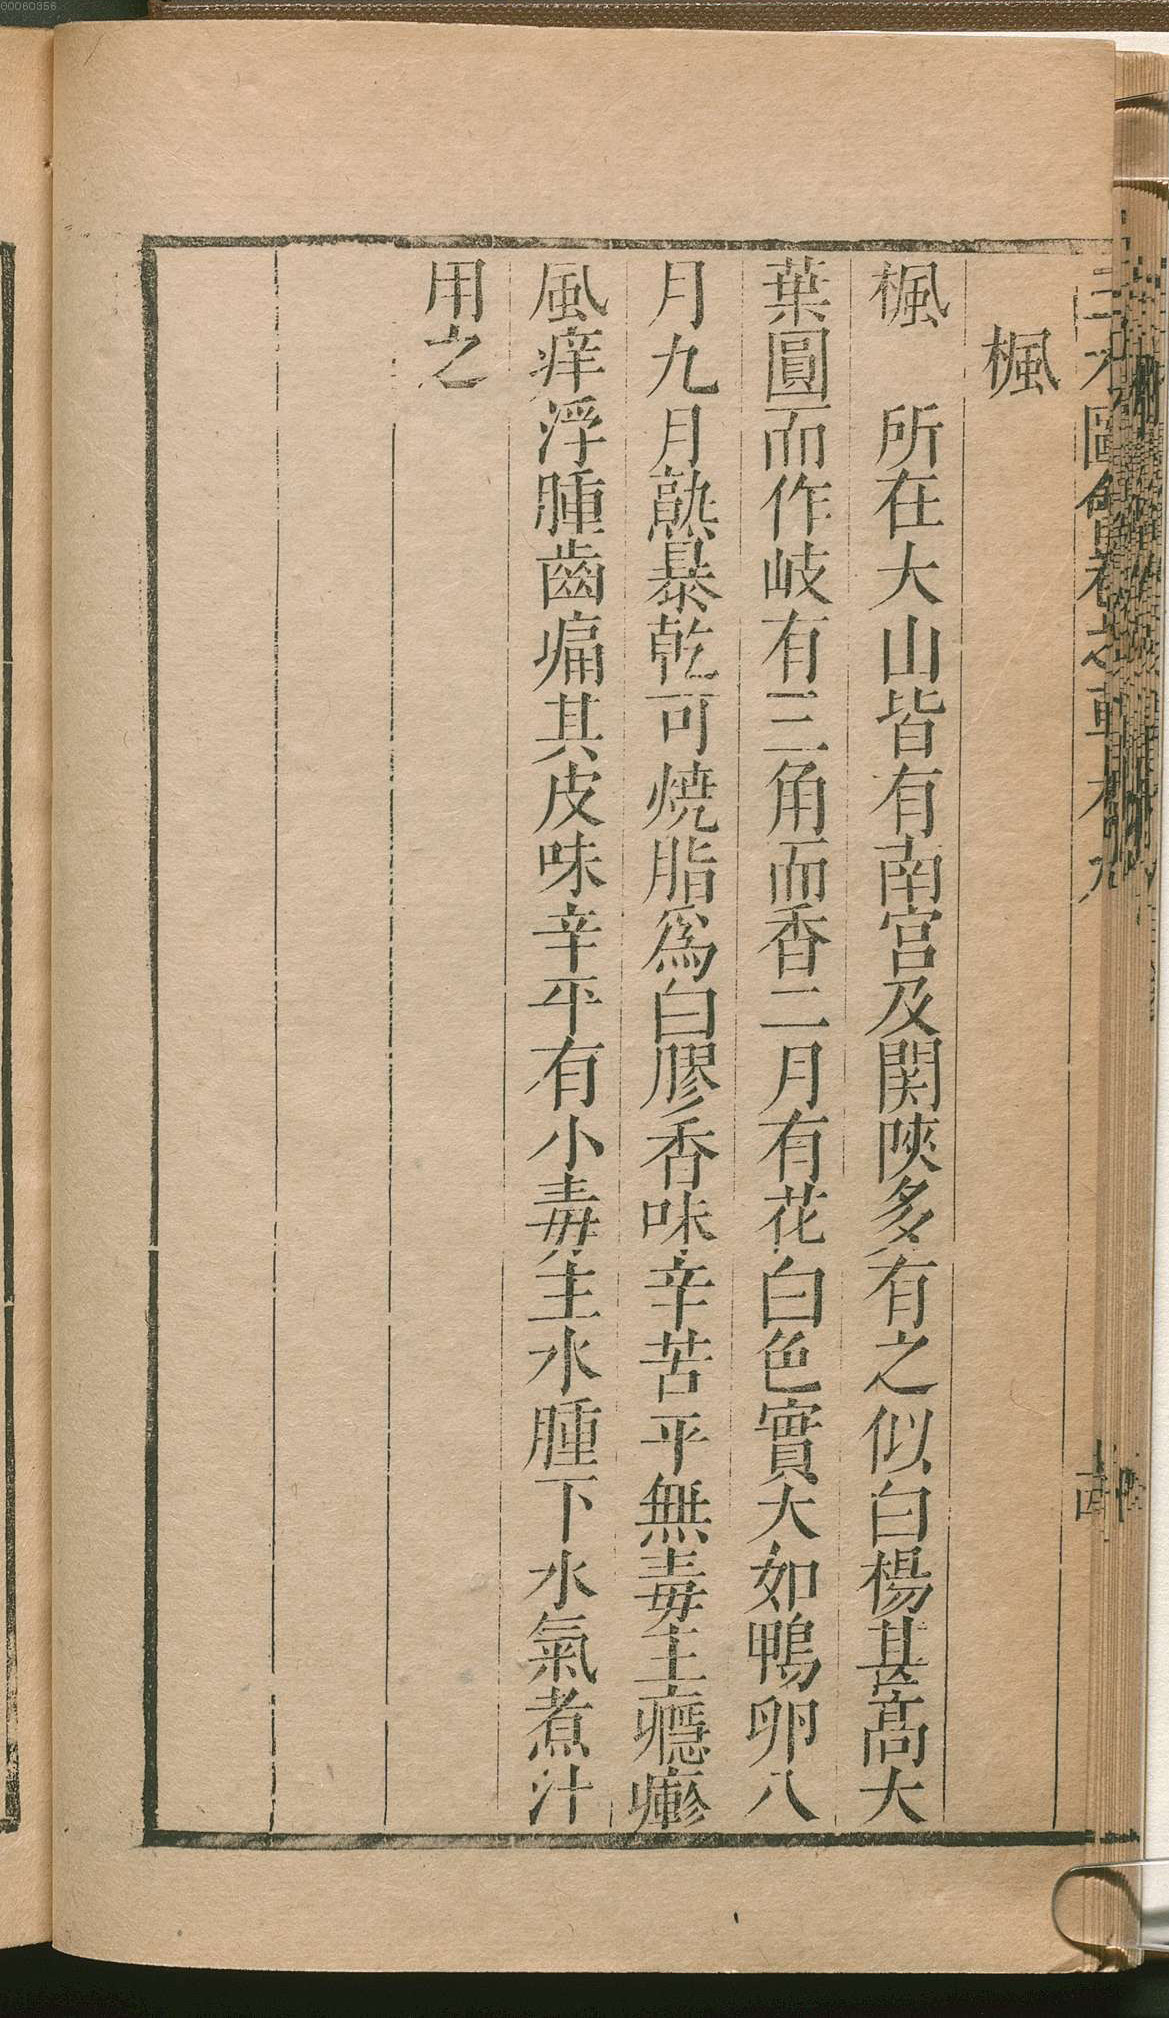 楓
楓　所在大山皆有南宮及関陝多有之似白楊甚髙大
葉圓而作岐有三角而香二月有花白色實大如鴨卵八
月九月熟暴乾可燒脂爲白膠香味辛苦平無毒主癮𤺋
風痒浮腫齒痛其皮味辛平有小毒主水腫下水氣煮汁
用之
00060356